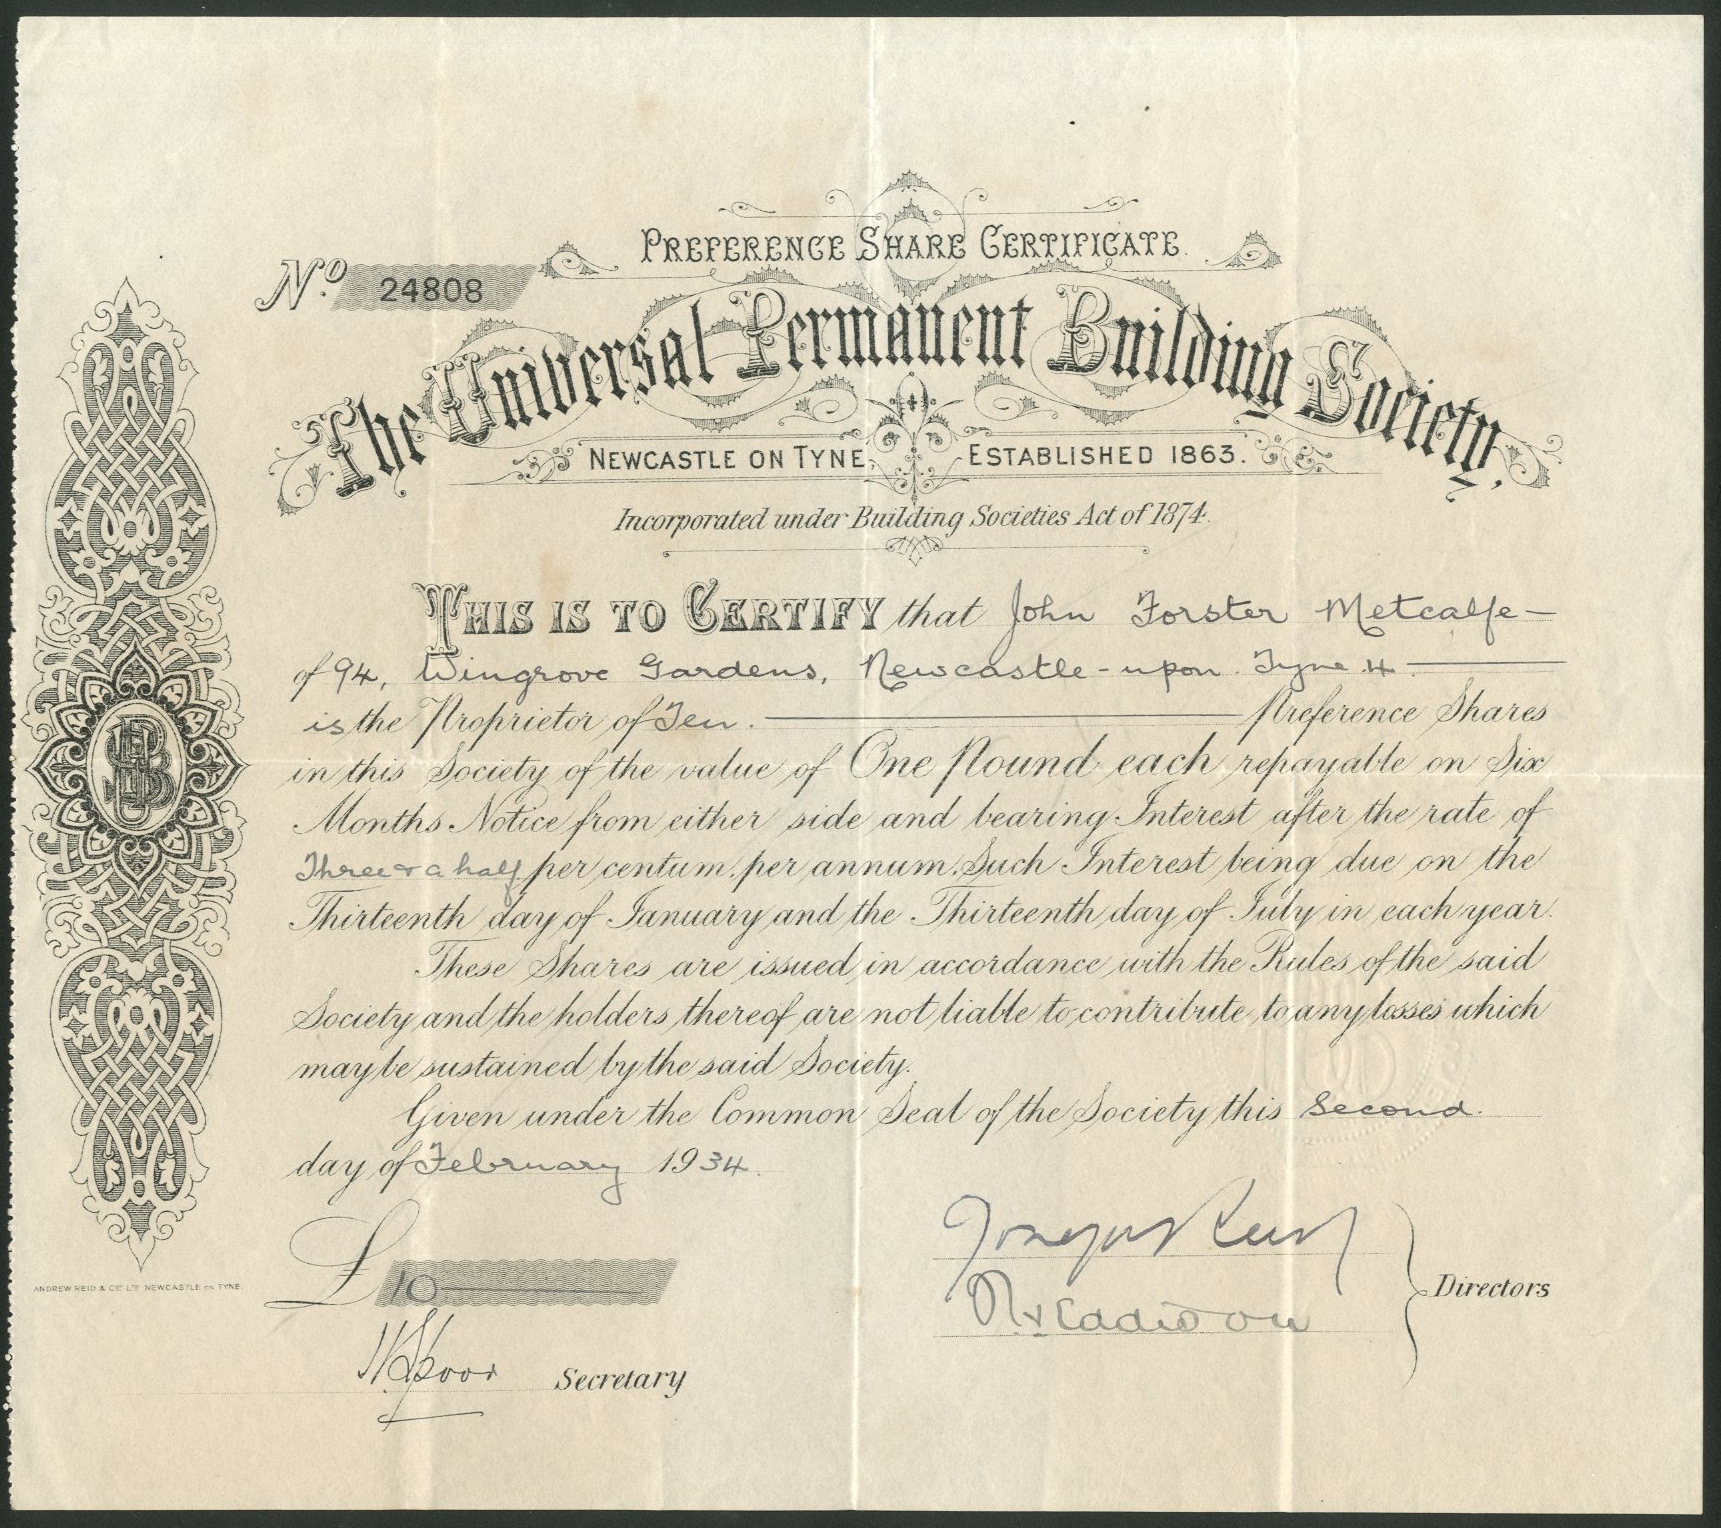 PREFERENCE SHARE CERTIFICATE.
No. 24808
The Universal Permanent Building Society,
NEWCASTLE ON TYNE, ESTABLISHED 1863.
Incorporated under Building Societies Act of 1874.
THIS IS TO CERTIFY that John Forster Metcalfe
of 94, Wingrove Gardens, Newcastle-upon-Tyne 4.
is the Proprietor of Ten. Preference Shares
in this Society of the value of One Pound each repayable on Six
Months Notice from either side and bearing Interest after the rate of
Three & a half per centum per annum. Such Interest being due on the
Thirteenth day of January and the Thirteenth day of July in each year.
These Shares are issued in accordance with the Rules of the said
Society and the holders thereof are not liable to contribute to any losses which
may be sustained by the said Society.
Given under the Common Seal of the Society this Second
day of February 1934.
£10
Directors
Secretary
ANDREW REID & COY LTD NEWCASTLE ON TYNE.